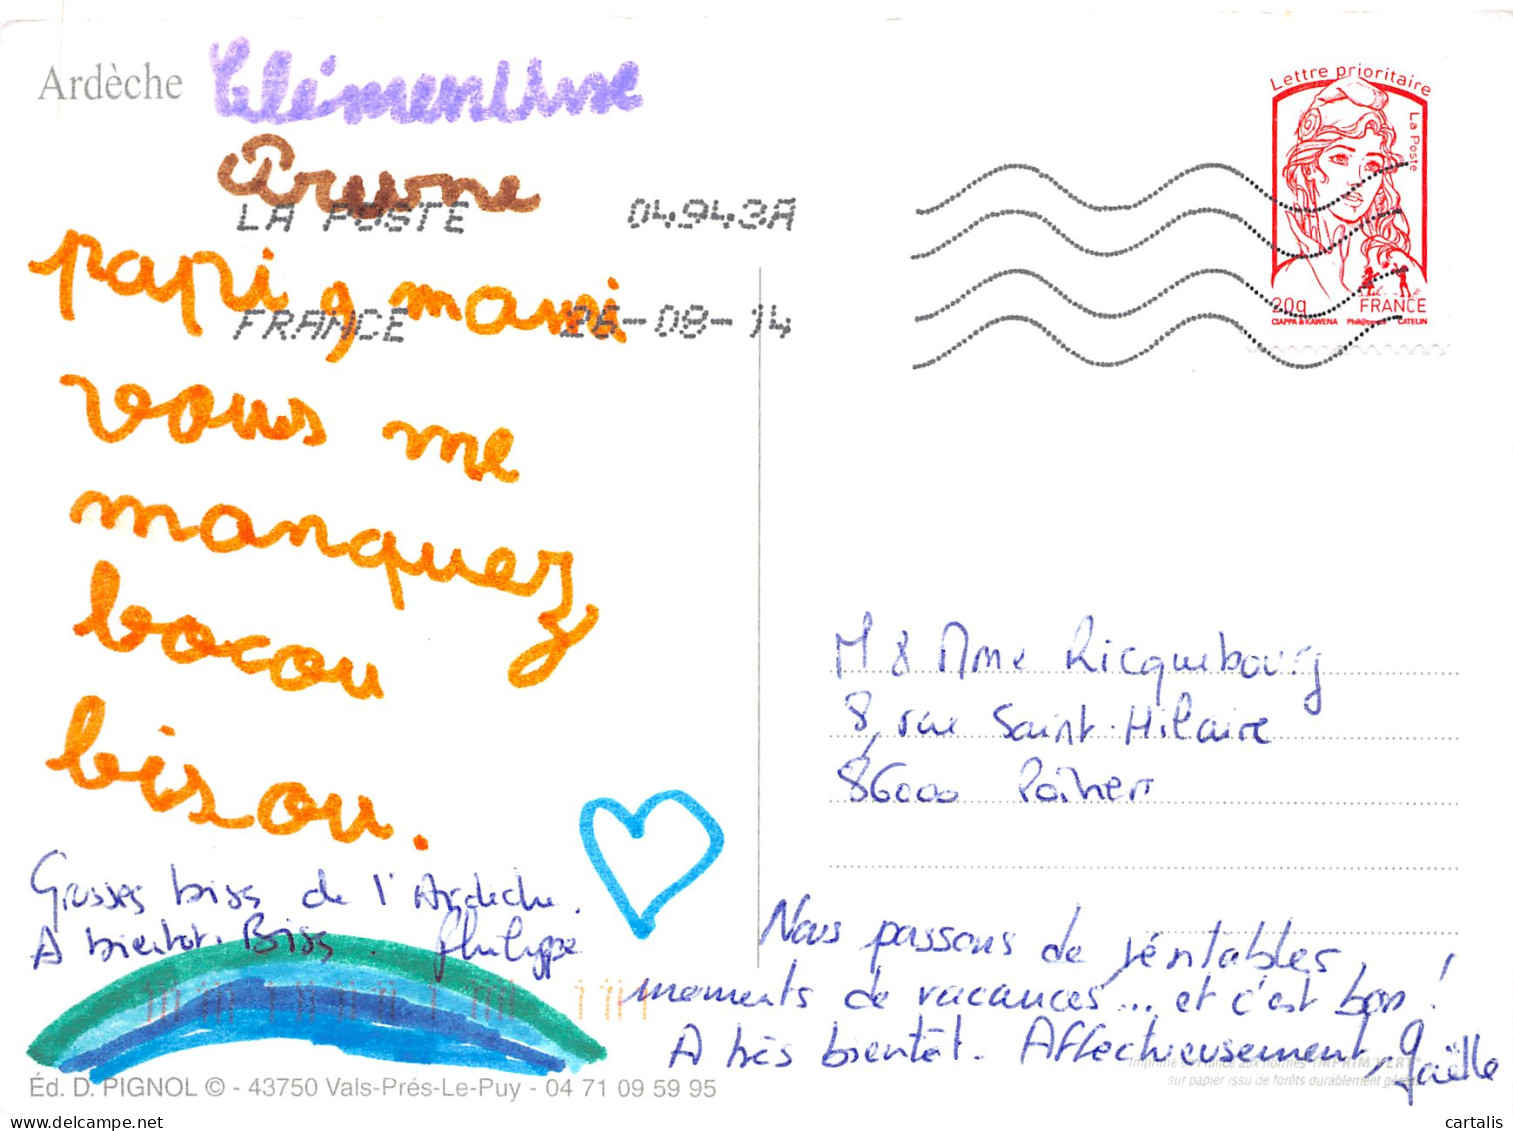 Ardèche Clémentine
LA POSTE 04943A
FRANCE 26-08-14
Lettre prioritaire
La Poste
20g FRANCE
CIAPPA & KAWENA Phil@poste CATELIN
papi, mami
vous me
manquez
bocou
bisou.
Grosses biss de l'Ardèche.
A bientot. Biss. Philippe
M & Mme Ricquebourg
8, rue Saint-Hilaire
86000 Poitiers
Nous passons de véritables
moments de vacances... et c'est bon !
A très bientôt. Affectueusement, Gaëlle
Éd. D. PIGNOL © - 43750 Vals-Prés-Le-Puy - 04 71 09 59 95
sur papier issu de forêts durablement
cartalis.com